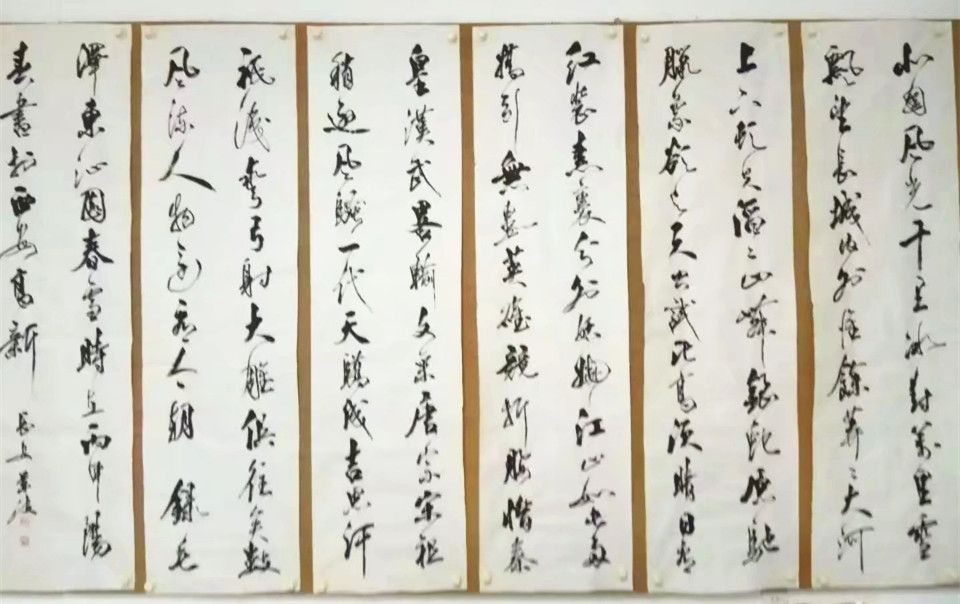 北國風光千里冰封萬里雪
飄望長城內外惟餘莽〻大河
上下頓失滔〻山舞銀蛇原馳
臘象欲與天公試比高須晴日看
紅裝素裹分外妖嬈江山如此多
嬌引無數英雄競折腰惜秦
皇漢武略輸文采唐宗宋祖
稍遜風騷一代天驕成吉思汗
祇識彎弓射大雕俱往矣數
風流人物還看今朝 錄毛
澤東沁園春雪時在丙申陽
春書於西安高新 長安